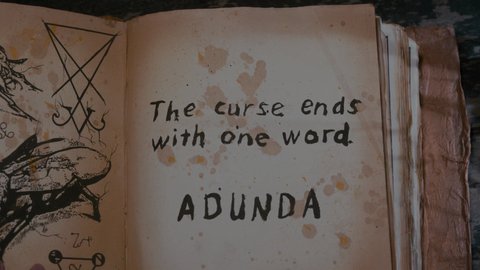 The curse ends
with one word
ADUNDA